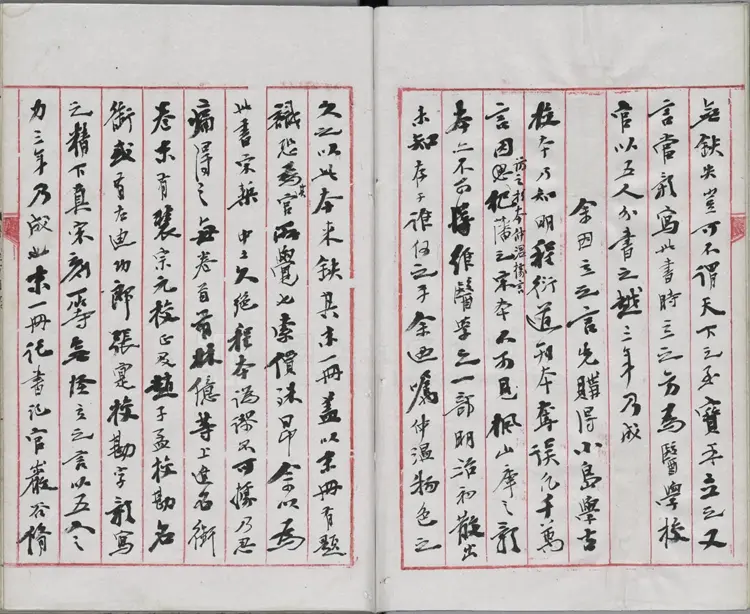 無缺失豈可不謂天下之至寶乎立之又
言當影寫此書時立之方為醫學校
官以五人分書之越三年乃成
余因立之言先購得小島學古
校本乃知明程衍道刊本奪誤凡千萬
言因思之宋本不可見楓山庫之影
訪之於仲溫據言
本亦不可得維醫學之一部明治初散出
未知存于誰何之手余迺囑仲溫物色之
久之以此本來缺其末一冊蓋以末冊有題
識恐為其官所覺也索價殊昂余以為
此書宋槧中土久絕程本謬不可據乃忍
痛得之每卷首有林億等上進名銜
卷末有裴宗元校正及趙子孟校勘名
銜或有右迪功郎張寔校勘字影寫
之精下真宋刻一等無怪立之言以五人之
力三年乃成也末一冊託書記官巖谷脩